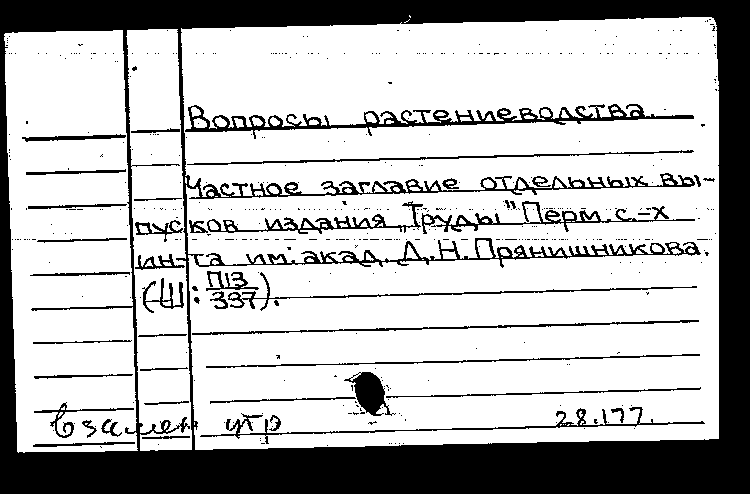 Вопросы растениеводства.
Частное заглавие отдельных вы-
пусков издания „Труды" Перм. с.-х
ин-та им. акад. Д.Н. Прянишникова.
(Ш: П13/337).
взамен утр 28.177.